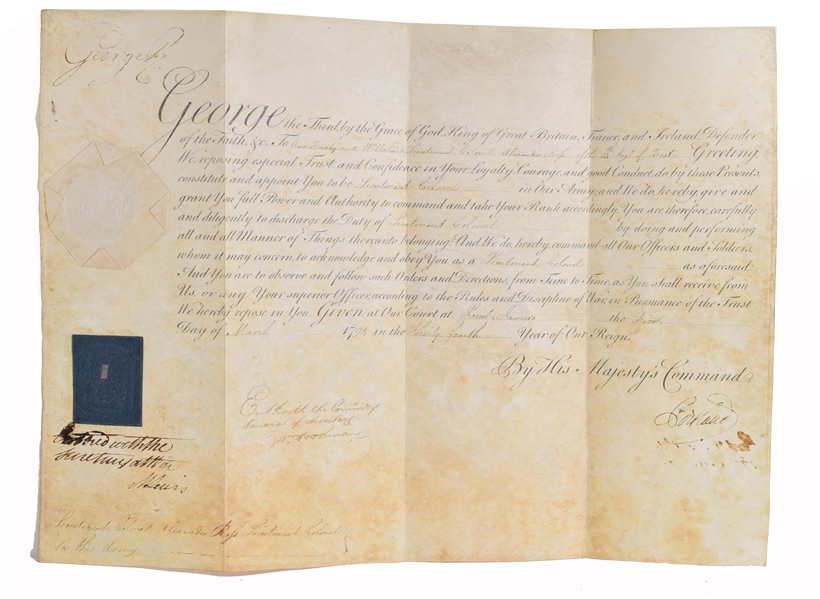 George R
George the Third, by the Grace of God, King of Great Britain, France, and Ireland, Defender
of the Faith, &c. To Our Trusty and Wellbeloved Lieutenant Colonel Alexander Ross of the 14th Regt of Foot Greeting,
We, reposing especial Trust and Confidence in Your Loyalty, Courage, and good Conduct, do by these Presents,
constitute and appoint You to be Lieutenant Colonel in Our Army, and We do, hereby, give and
grant You full Power and Authority to command and take Your Rank accordingly. You are, therefore, carefully
and diligently to discharge the Duty of Lieutenant Colonel by doing and performing
all and all Manner of Things thereunto belonging: And We do, hereby, command all Our Officers and Soldiers,
whom it may concern, to acknowledge and obey You as a Lieutenant Colonel as aforesaid.
And You are to observe and follow such Orders and Directions, from Time to Time, as You shall receive from
Us, or any Your superior Officer, according to the Rules and Discipline of War, in Pursuance of the Trust
We hereby repose in You. Given at Our Court at Saint James's the
Day of March 1794 in the Thirty fourth Year of Our Reign.
By His Majesty's Command
Portland
Entd with the Commissary
General of Musters
Wm Woodman
Entered with the
Secretary at War
M Lewis
Lieutenant Colonel Alexander Ross Lieutenant Colonel
in the Army